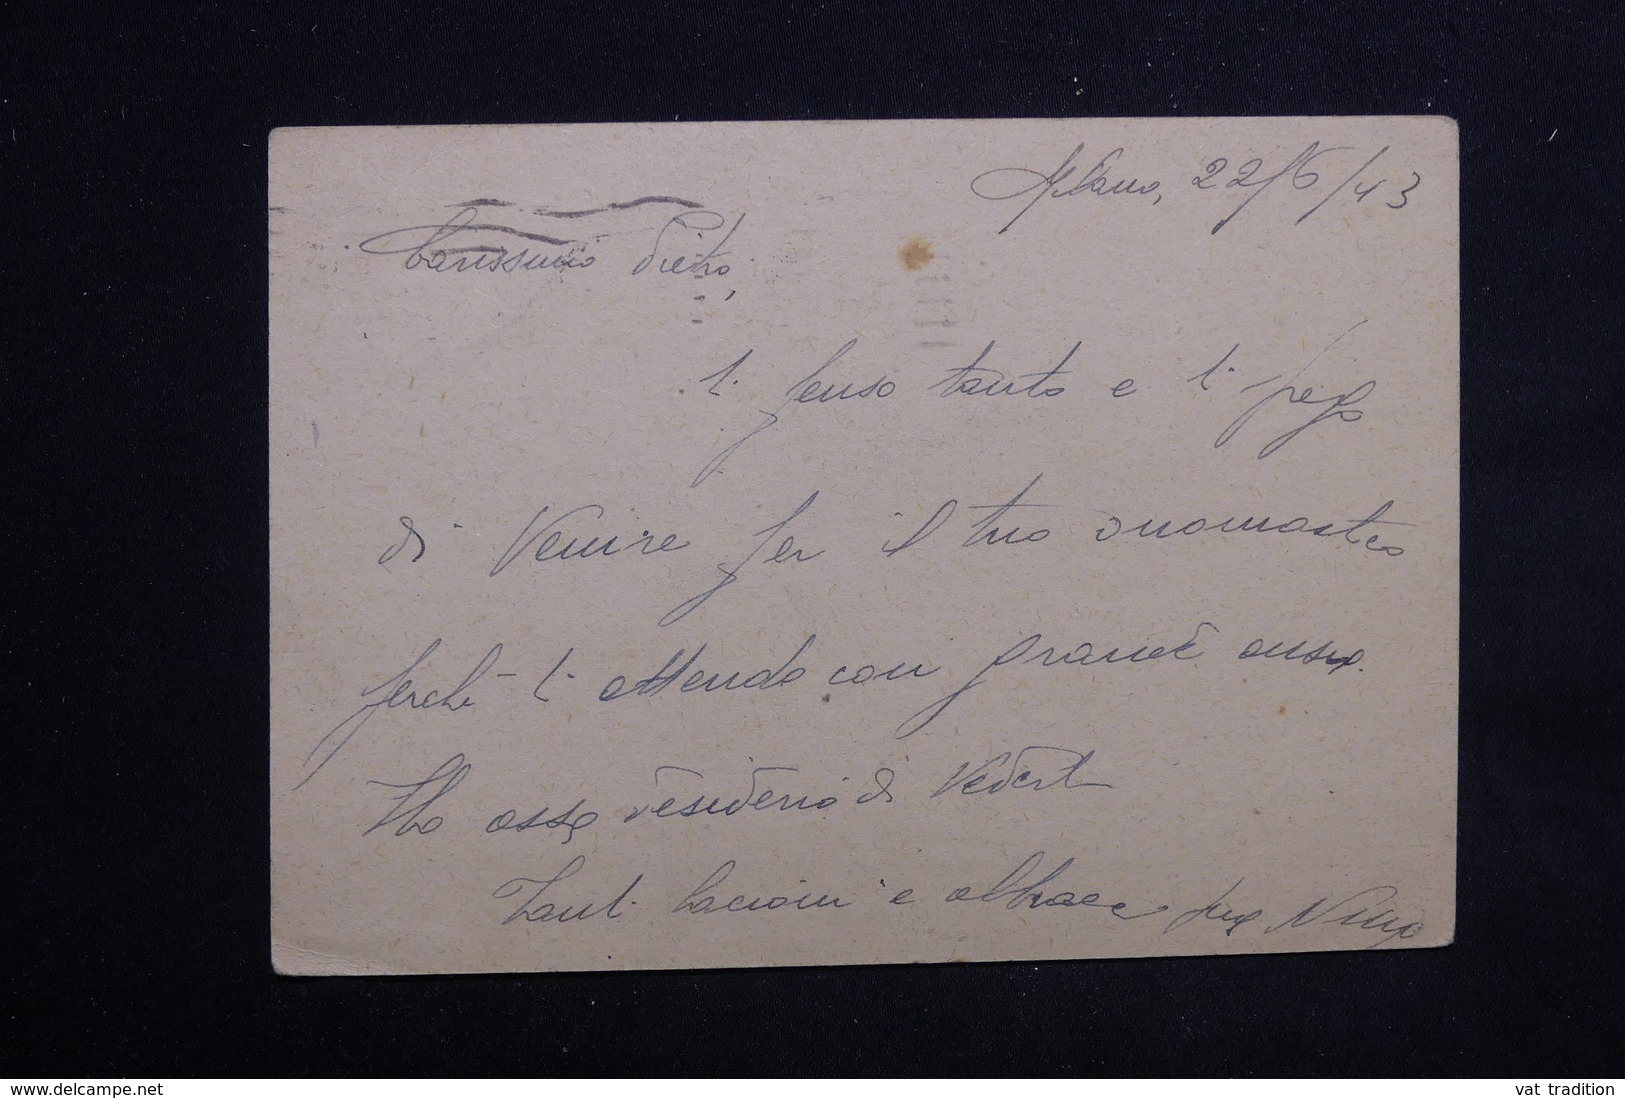 Milano, 22/6/43
Carissimo Pietro,
ti penso tanto e ti prego
di Venire per il tuo onomastico
perchè ti attendo con grande ansia.
Ho assa desiderio di Vederti
Tanti bacioni e abbracci tua Nina
www.delcampe.net
vat_tradition